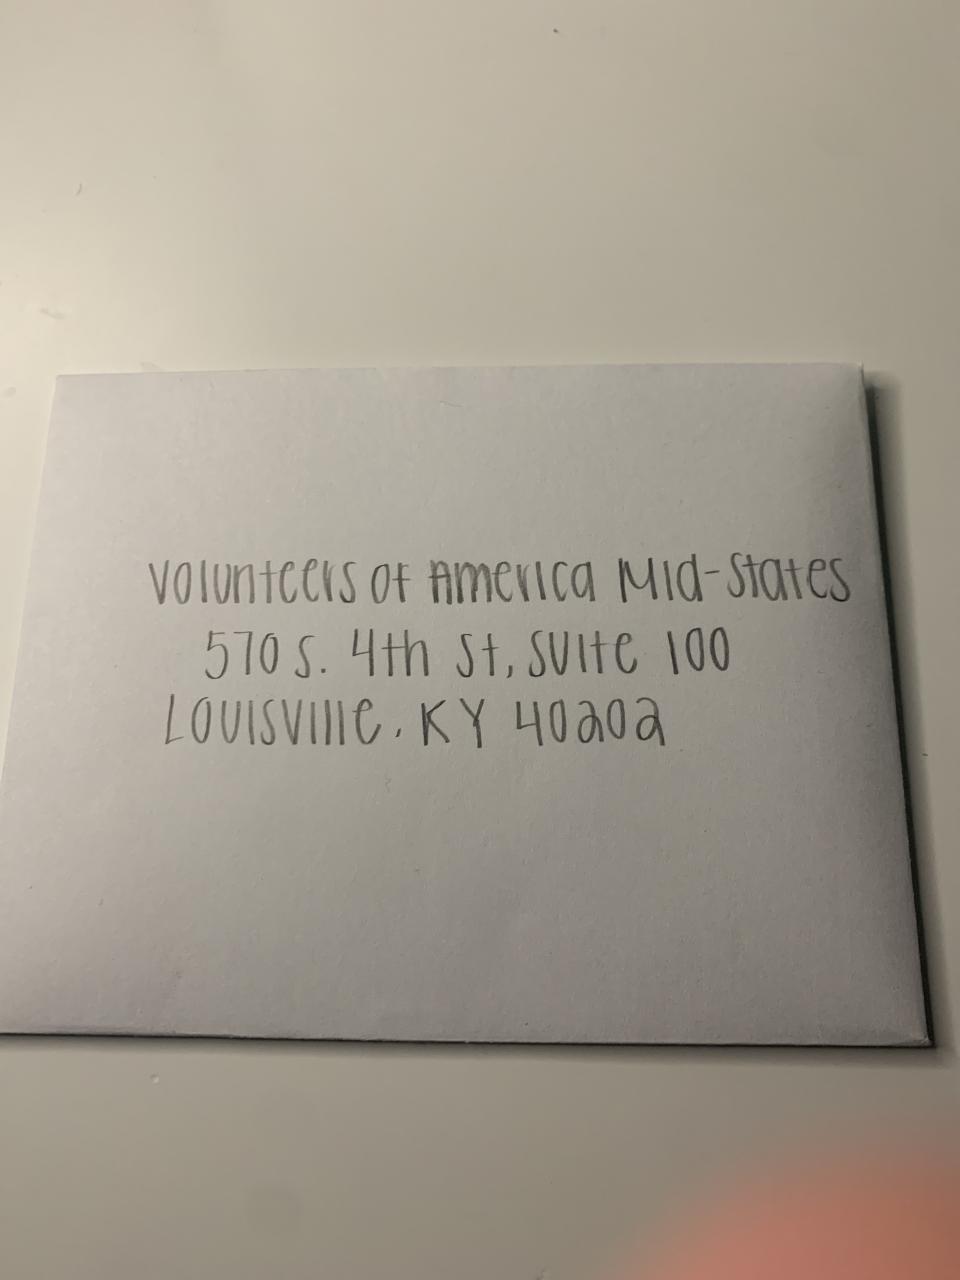 Volunteers of America Mid-States
570 S. 4th St, Suite 100
Louisville, KY 40202